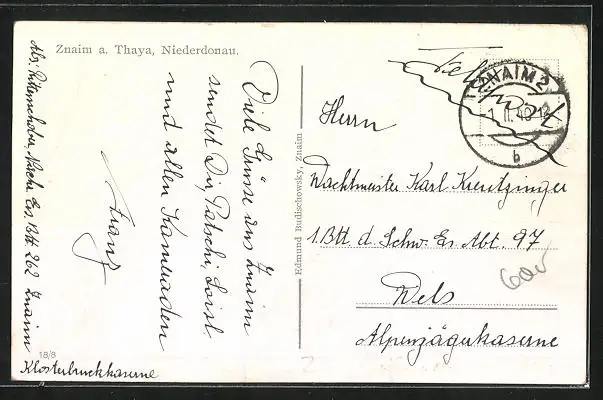 Znaim a. Thaya, Niederdonau.
Viele Grüsse aus Znaim
sendet Dir, Patschi, Loisl
und allen Kameraden
Franz
Abs: Nasch. Ers. Btt. 262 Znaim
Klosterbruckkaserne
18/8
Edmund Budischowsky, Znaim
Feldpost
ZNAIM 2
1. II. 40 - 12
b
Herrn
Wachtmeister Karl
1. Btt. d. Schw. Es. Abt. 97
Wels
Alpenjägerkaserne